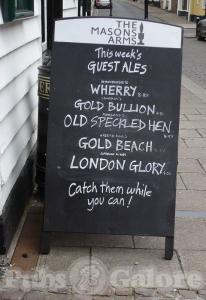 THE
MASONS
ARMS
This week's
GUEST ALES
WHERRY
GOLD BULLION
OLD SPECKLED HEN
GOLD BEACH
LONDON GLORY
Catch them while
you can!
Pubs Galore